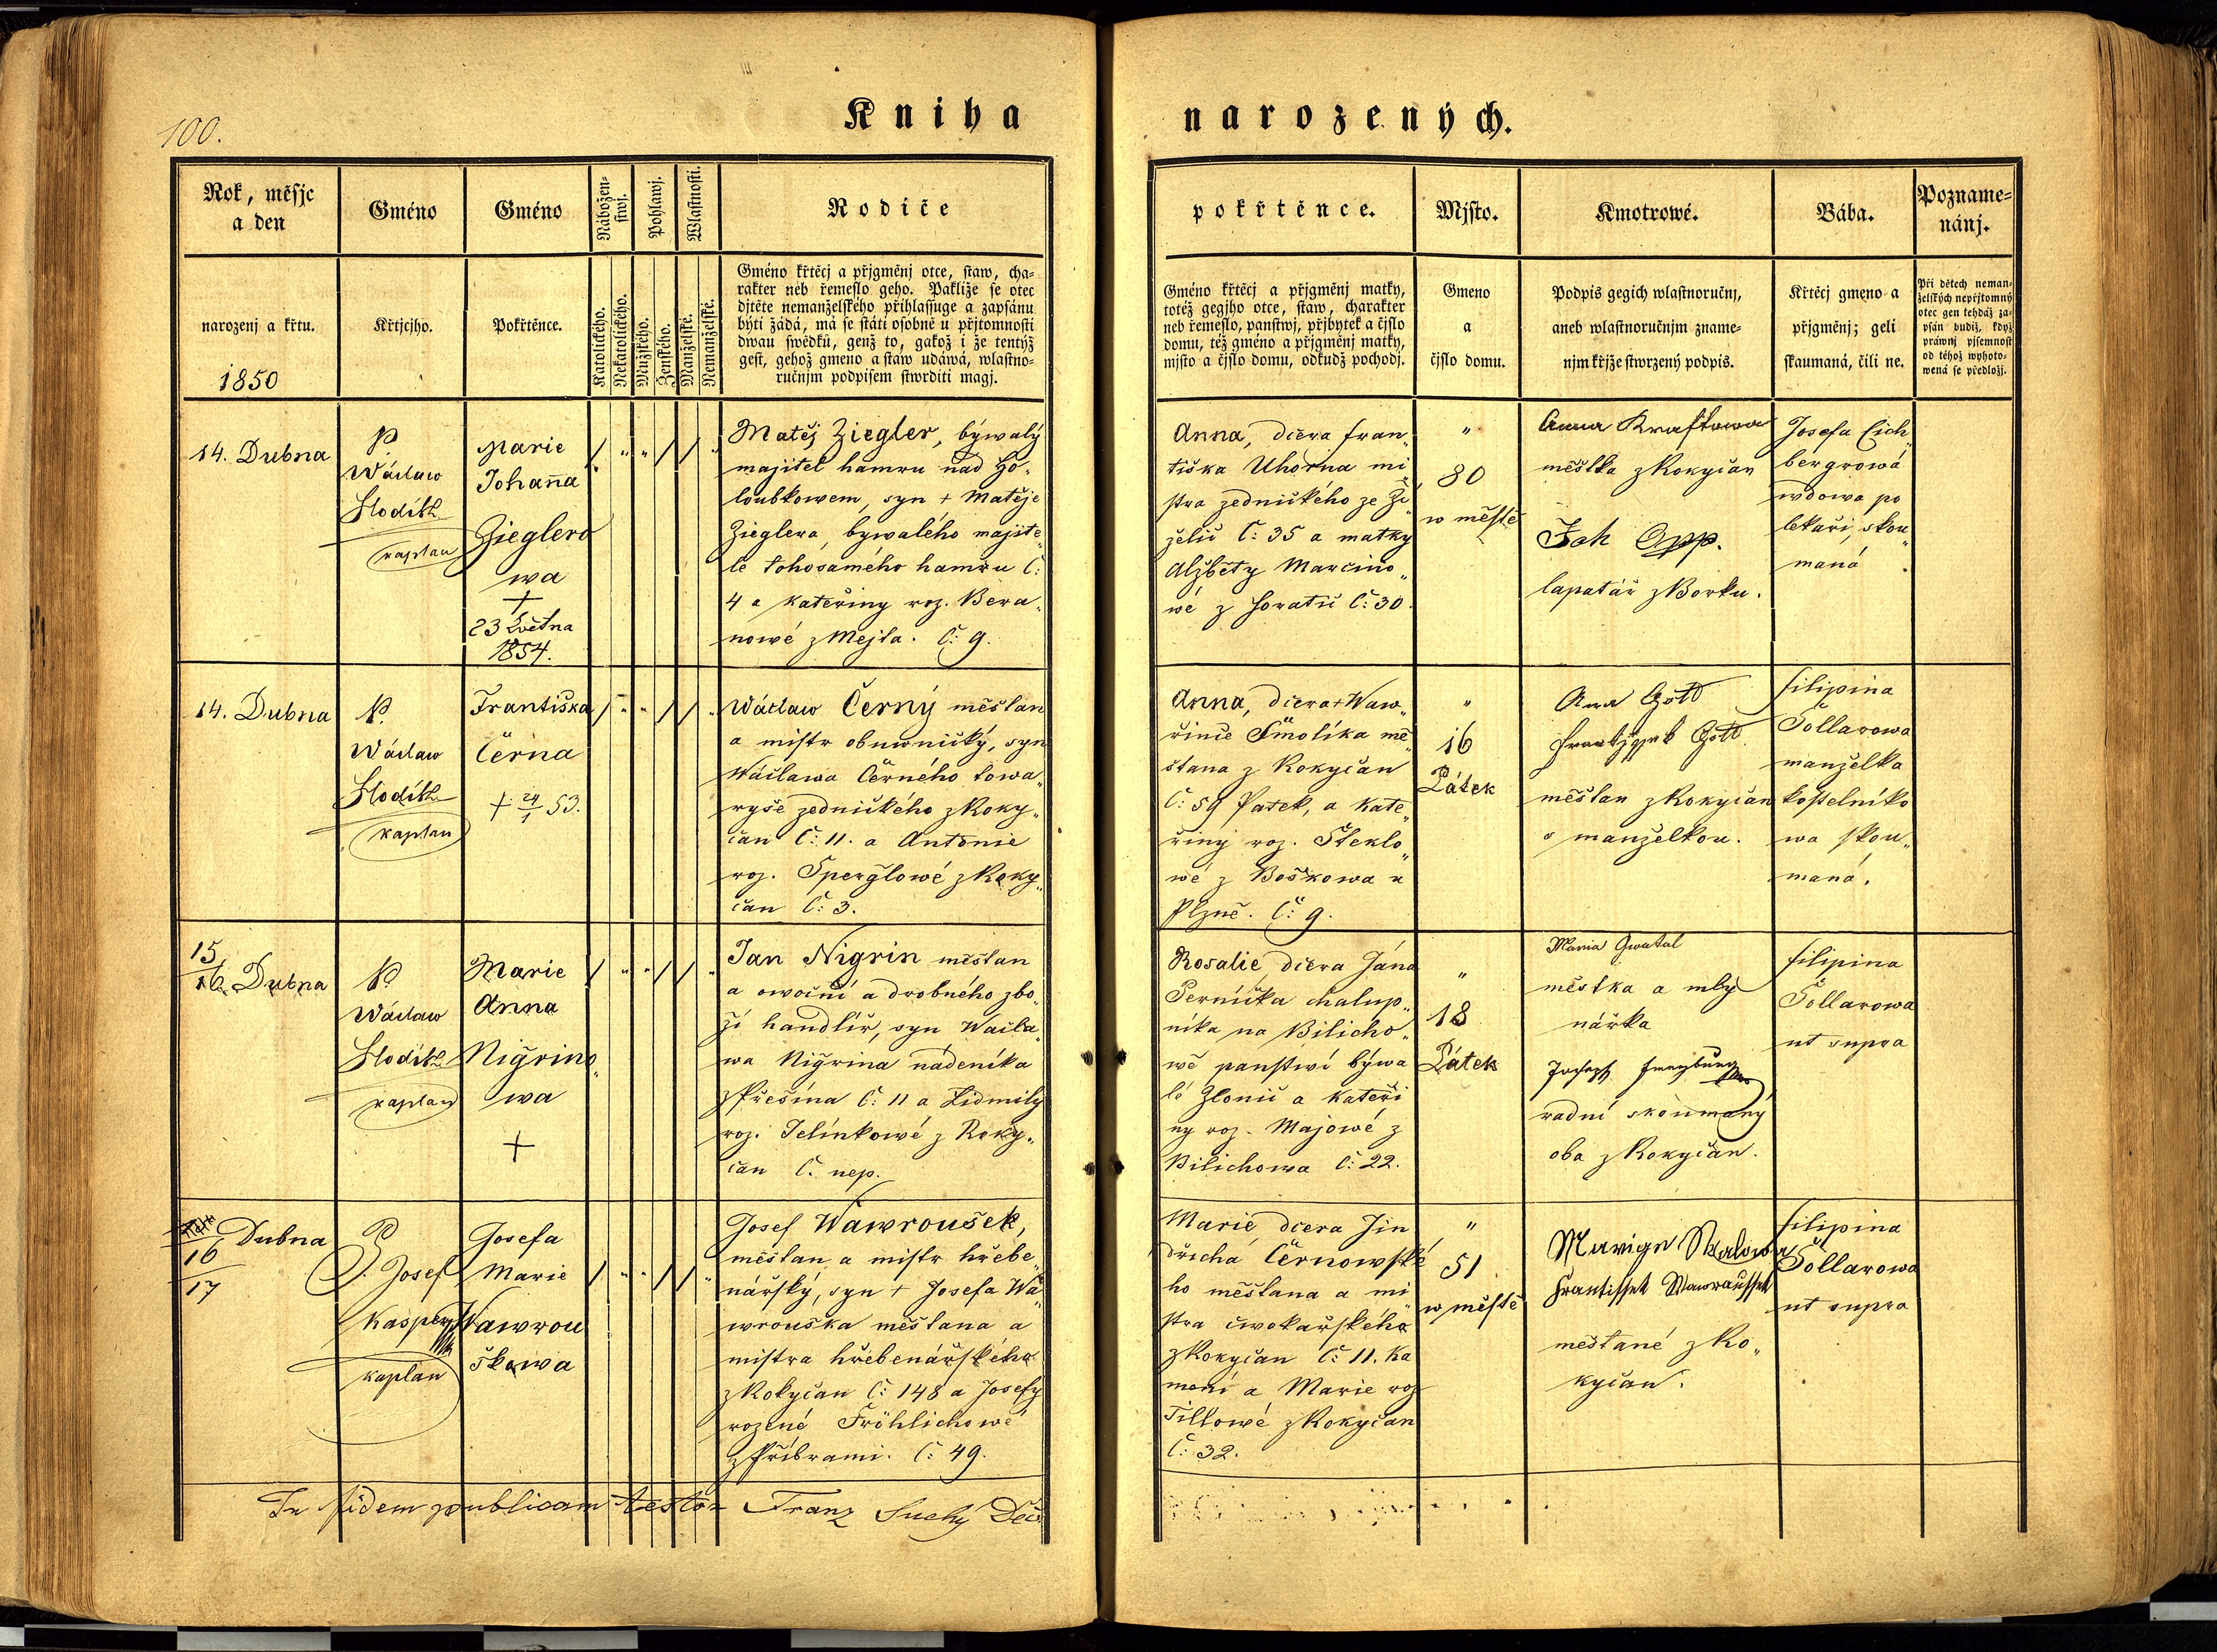 100.
Kniha narozených.
Rok, měsjc
a den
narozenj a křtu.
1850
Gméno
Křtjcjho.
Gméno
Pokřtěnce.
Nábožen-
stwj.
Katolického.
Nekatolického.
Pohlawj.
Mužského.
Ženského.
Wlastnosti.
Manželské.
Nemanželské.
Rodiče
Gméno křtěcj a přjgměnj otce, staw, cha-
rakter neb řemeslo geho. Pakliže se otec
djtěte nemanželského přihlassuge a zapsánu
býti žádá, má se státi osobně u přjtomnosti
dwau swědků, genž to, gakož i že tentýž
gest, gehož gmeno a staw udáwá, wlastno-
ručnjm podpisem stwrditi magj.
pokřtěnce.
Gméno křtěcj a přjgměnj matky,
totéž gegjho otce, staw, charakter
neb řemeslo, panstwj, přjbytek a čjslo
domu, též gméno a přjgměnj matky,
mjsto a čjslo domu, odkudž pochodj.
Mjsto.
Gmeno
a
čjslo domu.
Kmotrowé.
Podpis gegich wlastnoručnj,
aneb wlastnoručnjm zname-
njm křjže stwrzený podpis.
Bába.
Křtěcj gmeno a
přjgměnj; geli
skaumaná, čili ne.
Pozname-
nánj.
Při dětech neman-
želských nepřjtomný
otec gen tehdáž za-
psán budiž, když
práwnj pjsemnost
od téhož wyhoto-
wená se předložj.
14. Dubna
P.
Wáclaw
Slodítk
kaplan
Marie
Johana
Zieglero
wa
+
23 Května
1854.
Matěj Ziegler, býwalý
majitel hamru nad Ho„
loubkowem, syn + Matěje
Zieglera, bywalého majite„
le tohosamého hamru Č:
4 a Kateřiny roz. Bera„
nowé z Mejta. Č: 9.
Anna, dcera Fran„
tiška Uhorna mi„
stra zednického ze Zi„
želic Č: 35 a matky
Alžběty Marčino„
wé z Č: 30.
„
80
w městě
Anna Kraftowa
městka z Rokyčan
Joh Opp.
lapatář z Borku.
Josefa Eich„
bergrowá
wdowa po
lékaři, skou„
maná.
14. Dubna
P.
Wáclaw
Slodítk
kaplan
Františka
Černa
+ 24/1 53.
Wáclaw Černý měšťan
a mistr obuwnický, syn
Wáclawa Černého towa„
ryše zednického z Roky„
čan Č: 11. a Antonie
roz. Sperglowé z Roky„
čan Č: 3.
Anna, dcera + Waw„
řince Smolíka mě„
šťana z Rokyčan
Č: 59 Pátek, a Kate„
řiny roz. Steklo„
wé z Boškowa u
Plzně. Č: 9.
„
16
Pátek
Ana Gott
Frantjssek Gott
měšťan z Rokyčan
s manželkou.
Filipina
Tollarowa
manželka
kostelníko
wa skou„
maná.
15/16. Dubna
P.
Wáclaw
Slodítk
kaplan
Marie
Anna
Nigrino„
wa
+
Jan Nigrin měšťan
a owocní a drobného zbo„
ží handlíř, syn Wácla„
wa Nigrina nádeníka
z Přešína Č: 11 a Lidmily
roz. Jelínkowé z Roky„
čan Č. nep.
Rosalie dcera Jána
Perníčka chalup„
níka na Bilicho„
wě panstwí býwa
lé Zlonic a Kateři
ny roz. Majowé z
Bilichowa Č: 22.
„
18
Pátek
Maria Gwatal
městka a mly
nářka
Joseph
radní skoumaný
oba z Rokyčan.
Filipina
Tollarowa
ut supra
16/17 Dubna
P. Josef
Kasper
kaplan
Josefa
Marie
Wawrou
škowa
Josef Wawroušek,
měšťan a mistr hřebe„
nářský, syn + Josefa Wa„
wrouška měšťana a
mistra hřebenářského
z Rokyčan Č: 148 a Josefy
rozené Fröhlichowé
z Příbrami. Č: 49.
Marie dcera Jin
dřicha Černowské
ho měšťana a mi„
stra cwokařského
z Rokyčan Č: 11. Ka
mení a Marie roz
Tillowé z Rokyčan
Č: 32.
„
51
w městě
Marige Skalowa
Frantissek Wawraussek
měšťané z Ro„
kyčan.
Filipina
Tollarowa
ut supra
In fidem publicam testor Franz Suchý Děc